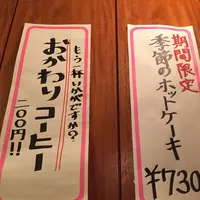 期間限定
季節のホットケーキ
¥730
もう一杯いかがですか?
おかわりコーヒー
二〇〇円!!